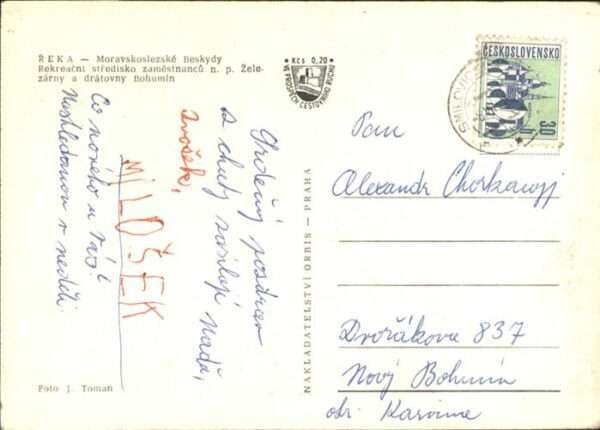 ŘEKA — Moravskoslezské Beskydy
Rekreační středisko zaměstnanců n. p. Žele-
zárny a drátovny Bohumín
Kčs 0,20
VE PROSPĚCH CESTOVNÍHO RUCHU
ČESKOSLOVENSKO
30
SMILOVICE
Pan
Alexandr Chorkawyj
Dvořákova 837
Nový Bohumín
okr. Karvina
NAKLADATELSTVÍ ORBIS — PRAHA
Srdečný pozdrav
a chuty zasílají Naďa,
MILOŠEK
Co nového u vás?
Nashledanou v neděli.
Foto J. Toman